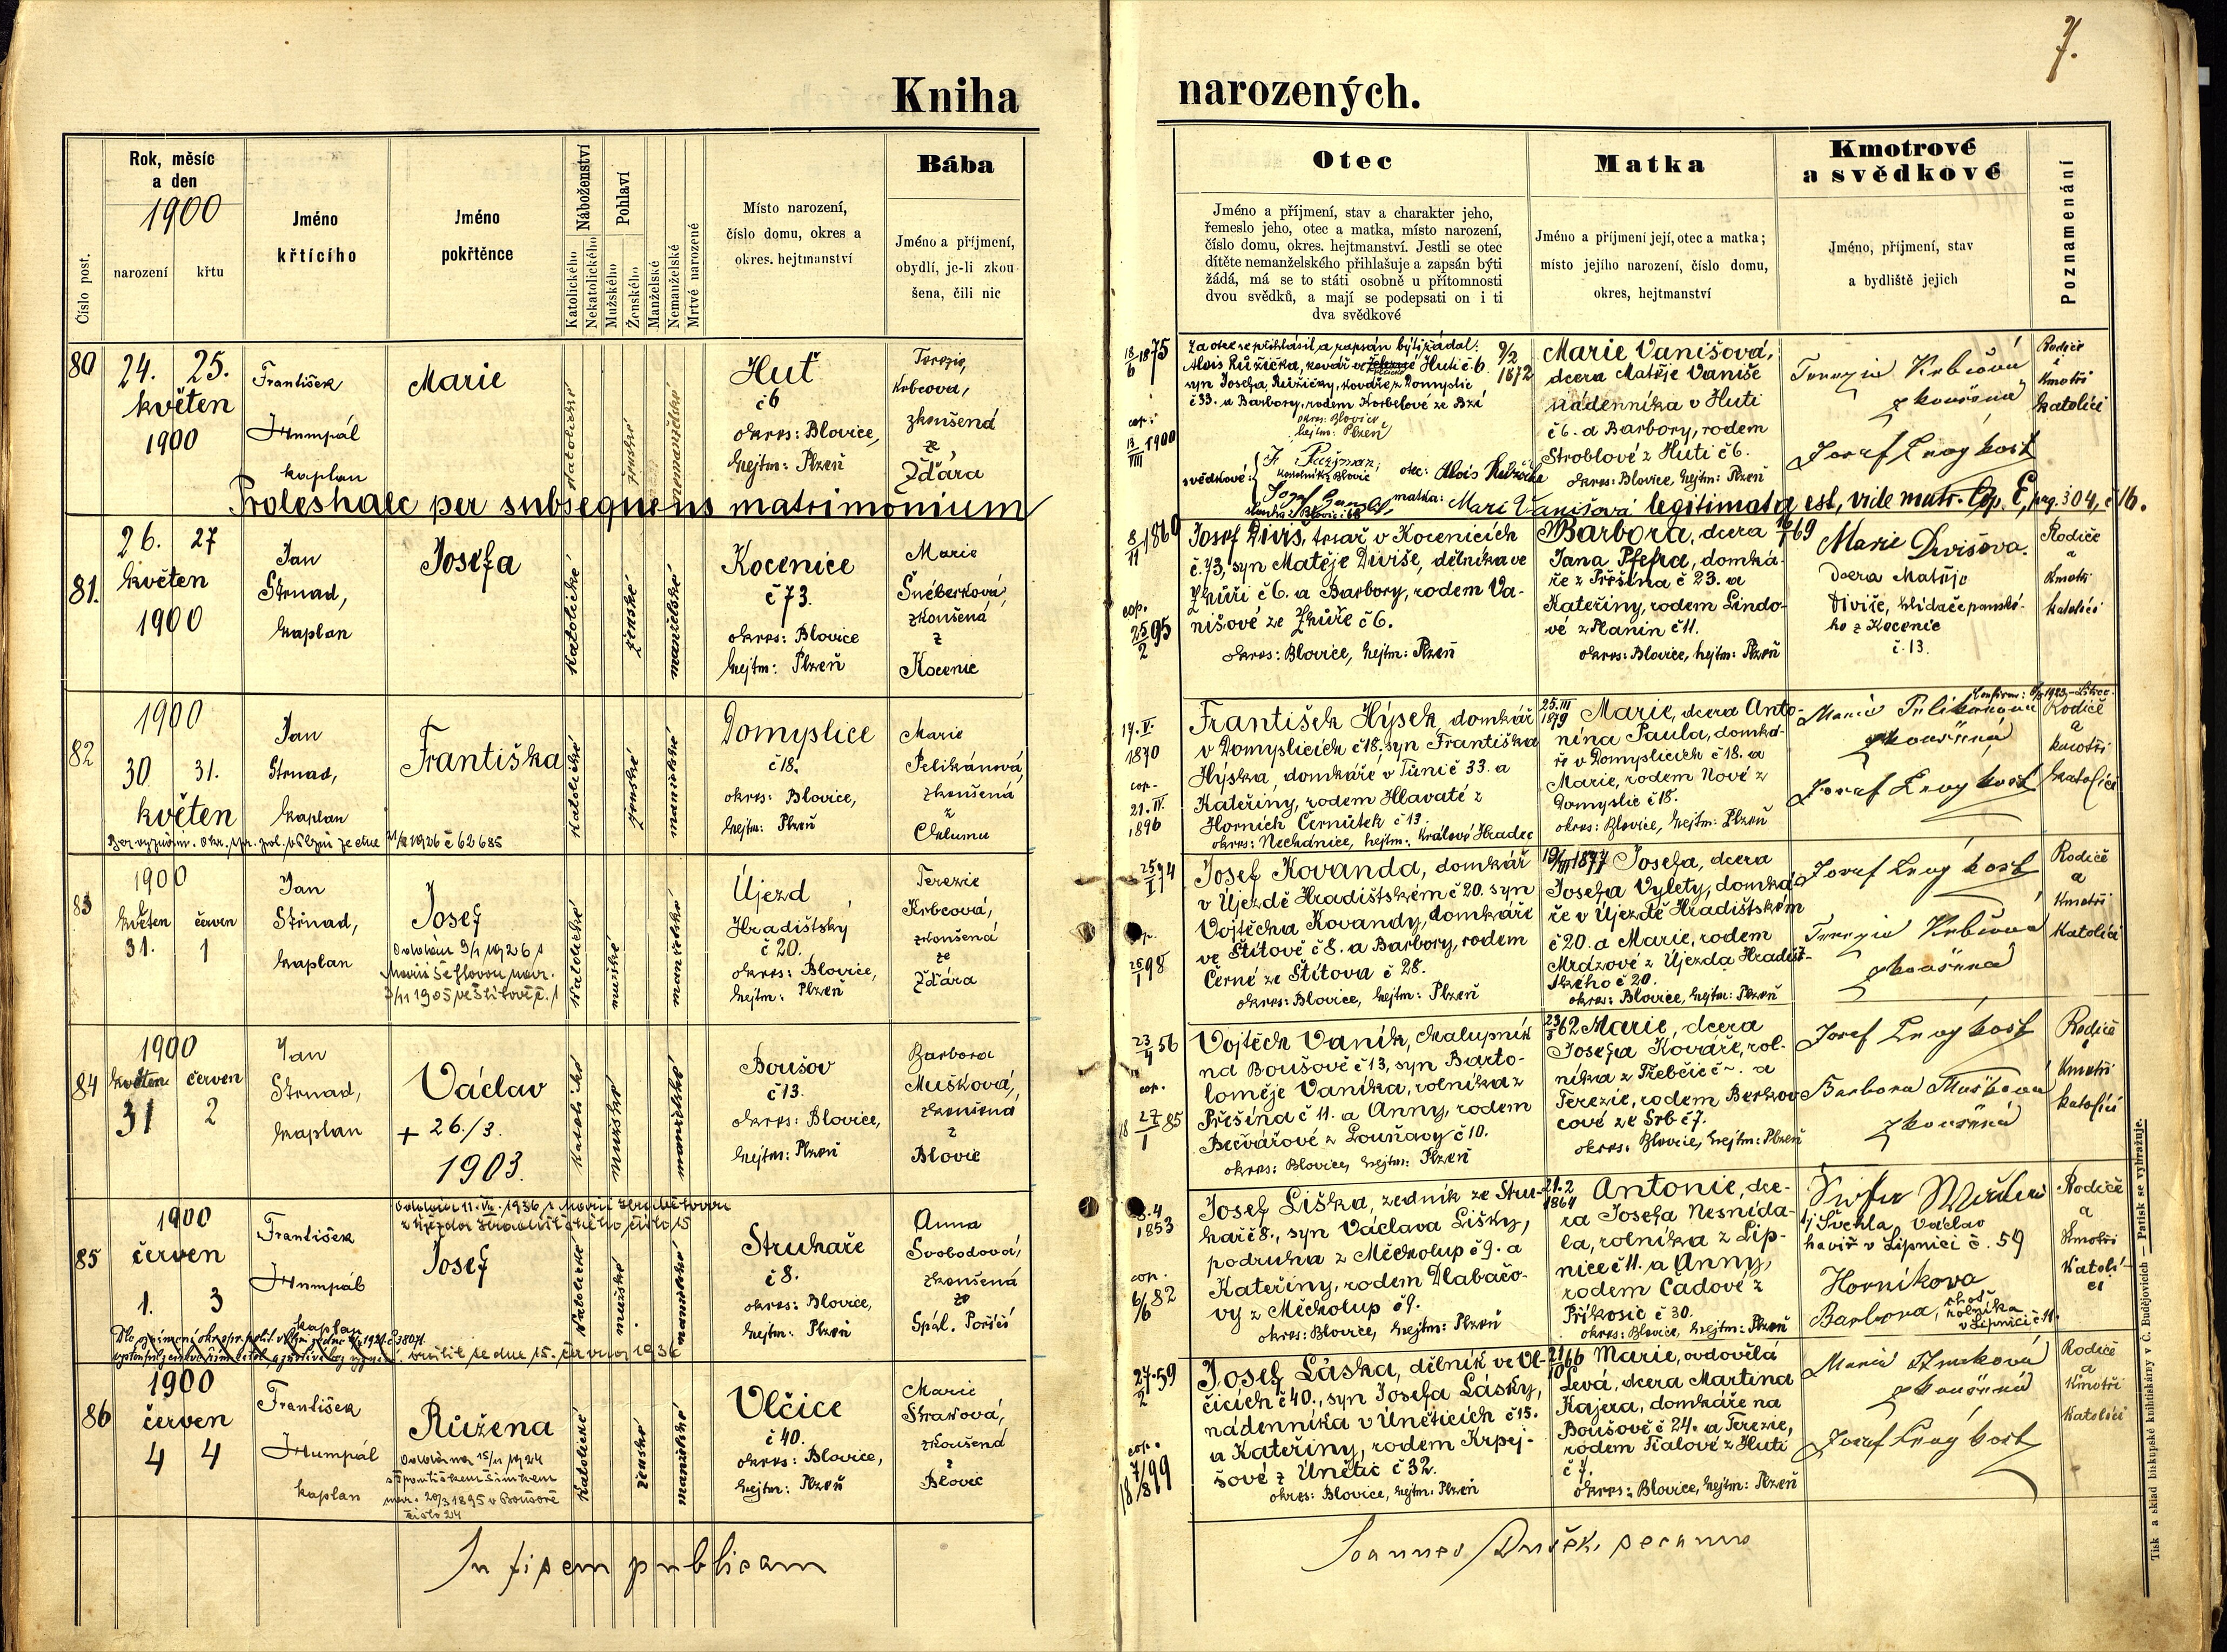 7.
Kniha narozených.
Číslo post.
Rok, měsíc
a den
1900
narození
křtu
Jméno
křtícího
Jméno
pokřtěnce
Náboženství
Katolického
Nekatolického
Pohlaví
Mužského
Ženského
Manželské
Nemanželské
Mrtvé narozené
Místo narození,
číslo domu, okres a
okres. hejtmanství
Bába
Jméno a příjmení,
obydlí, je-li zkou
šena, čili nic
Otec
Jméno a příjmení, stav a charakter jeho,
řemeslo jeho, otec a matka, místo narození,
číslo domu, okres. hejtmanství. Jestli se otec
dítěte nemanželského přihlašuje a zapsán býti
žádá, má se to státi osobně u přítomnosti
dvou svědků, a mají se podepsati on i ti
dva svědkové
Matka
Jméno a příjmení její, otec a matka;
místo jejího narození, číslo domu,
okres, hejtmanství
Kmotrové
a svědkové
Jméno, příjmení, stav
a bydliště jejich
Poznamenání
80
24. 25.
květen
1900
František
Humpál
kaplan
Marie
katolické
ženské
nemanželské
Huť
č 6
okres: Blovice,
hejtm: Plzeň
Terezie
Krbcová,
zkoušená
ze
Žďára
18/6 1875
cop:
13/VIII 1900
Za otce se přihlásil a zapsán býti žádal:
Alois Růžička, kovář ve Huti č. 6.
syn Josefa Růžičky, kováře z Domyslic
č 33. a Barbory, rodem Korbelové ze Bzí
okres: Blovice
hejtm: Plzeň
svědkové:
otec: Alois Růžička
matka: Mari Vanišová
9/2 1872
Marie Vanišová,
dcera Matěje Vaniše
nádenníka v Huti
č 6. a Barbory, rodem
Stroblové z Huti č 6.
okres: Blovice, hejtm: Plzeň
Terezie Krbcová
zkoušená
Josef
Rodiče
i
Kmotři
katolíci
Proles hacc per subsequens matrimonium legitimata est, vide matr. Cop. E, pag. 304, č 16.
81.
26. 27
květen
1900
Jan
Strnad,
kaplan
Josefa
katolické
ženské
manželské
Kocenice
č 73.
okres: Blovice
hejtm: Plzeň
Marie
Šnéberková,
zkoušená
z
Kocenic
8/11 1869
cop.
25/2 95
Josef Diviš, tesař v Kocenicích
č. 73, syn Matěje Diviše, dělníka ve
Zhůři č 6. a Barbory, rodem Va-
nišové ze Zhůře č 6.
okres: Blovice, hejtm: Plzeň
Barbora, dcera
Jana Pfefra, domká-
ře z Přešína č 23. a
Kateřiny, rodem Lindo-
vé z Planin č 11.
okres: Blovice, hejtm: Plzeň
Marie Divišova.
dcera Matěje
Diviše, hlídače panské-
ho z Kocenic
č. 13.
Rodiče
a
Kmotři
katolíci
82
1900
30. 31.
květen
Jan
Strnad,
kaplan
Františka
katolické
ženské
manželské
Domyslice
č 18.
okres: Blovice,
hejtm: Plzeň
Marie
Pelikánová,
zkoušená
z
Chlumu
17. V.
1870
cop.
21. IV.
1896
František Hýsek, domkář
v Domyslicích č 18. syn Františka
Hýska, domkáře v Tůni č 33. a
Kateřiny, rodem Hlavaté z
Horních Černůtek č 13.
okres: Nechanice, hejtm: Králové Hradec
25. III
1879
Marie, dcera Anto-
nína Paula, domká-
ře v Domyslicích č 18. a
Marie, rodem Nové z
Domyslic č 18.
okres: Blovice, hejtm: Plzeň
Marie Pelikánová
zkoušená
Josef
Rodiče
a
kmotři
katolíci
83
1900
květen červen
31. 1
Jan
Strnad,
kaplan
Josef
katolické
mužské
manželské
Újezd
Hradišťský
č 20.
okres: Blovice,
hejtm: Plzeň
Terezie
Krbcová,
zkoušená
ze
Žďára
25/1 74
25/1 98
Josef Kovanda, domkář
v Újezdě Hradištském č 20. syn
Vojtěcha Kovandy, domkáře
ve Štítově č 8. a Barbory, rodem
Černé ze Štítova č 28.
okres: Blovice, hejtm: Plzeň
19/III 1877 Josefa, dcera
Josefa Vylety, domká-
ře v Újezdě Hradištském
č 20. a Marie, rodem
Mrázové z Újezda Hradišť-
ského č 20.
okres: Blovice, hejtm: Plzeň
Josef
Terezie Krbcová
zkoušená
Rodiče
a
Kmotři
Katolíci
84
1900
květen červen
31 2
Jan
Strnad,
kaplan
Václav
+ 26./3.
1903.
katolické
mužské
manželské
Boušov
č 13.
okres: Blovice,
hejtm: Plzeň
Barbora
Mušková,
zkoušená
z
Blovic
23/4 56
cop.
27/1 85
Vojtěch Vaník, chalupník
na Boušově č 13, syn Barto-
loměje Vaníka, rolníka z
Přešína č 11. a Anny, rodem
Bečvářové z Louňavy č 10.
okres: Blovice, hejtm: Plzeň
Marie, dcera
Josefa Kováře, rol-
níka z Třebčic č ~. a
Terezie, rodem Berkov-
cové ze Srb č 7.
okres: Blovice, hejtm: Plzeň
Josef
Barbora Mušková
zkoušená
Rodiče
Kmotři
katolíci
85
1900
červen
1. 3
František
Humpál
kaplan
Josef
katolické
mužské
manželské
Struhaře
č 8.
okres: Blovice,
hejtm: Plzeň
Anna
Svobodová,
zkoušená
ze
Spál. Poříčí
8. 4
1853
cop.
6/6 82
Josef Liška, zedník ze Stru-
hař č 8., syn Václava Lišky,
podruha z Měcholup č 9. a
Kateřiny, rodem Dlabačo-
vy z Měcholup č 9.
okres: Blovice, hejtm: Plzeň
21. 2
1864
Antonie, dce-
ra Josefa Nesnída-
la, rolníka z Lip-
nice č 11. a Anny,
rodem Cadové z
Příkosic č 30.
okres: Blovice, hejtm: Plzeň
tj Švehla, Václav
havíř v Lipnici č. 59
Horníkova
Barbora, choť
rolníka
v Lipnici č 11.
Rodiče
a
Kmotři
Katolí-
ci
86
1900
červen
4 4
František
Humpál
kaplan
Růžena
nar. 20/3 1895 v Boušově
číslo 24
katolické
ženské
manželské
Vlčice
č 40.
okres: Blovice,
hejtm: Plzeň
Marie
Straková,
zkoušená
z
Blovic
27/2 59
cop.
Josef Láska, dělník ve Vl-
čicích č 40., syn Josefa Lásky,
nádenníka v Úněticích č 15.
a Kateřiny, rodem Krpej-
šové z Únětic č 32.
okres: Blovice, hejtm: Plzeň
Marie, ovdovělá
Levá, dcera Martina
Kajera, domkáře na
Boušově č 24. a Terezie,
rodem Fialové z Huti
č 7.
okres: Blovice, hejtm: Plzeň
Marie Straková
zkoušená
Josef
Rodiče
a
Kmotři
Katolíci
In fidem publicam
Joannes Dušek, decanus
Tisk a sklad biskupské knihtiskárny v Č. Budějovicích — Patisk se vyhražuje.